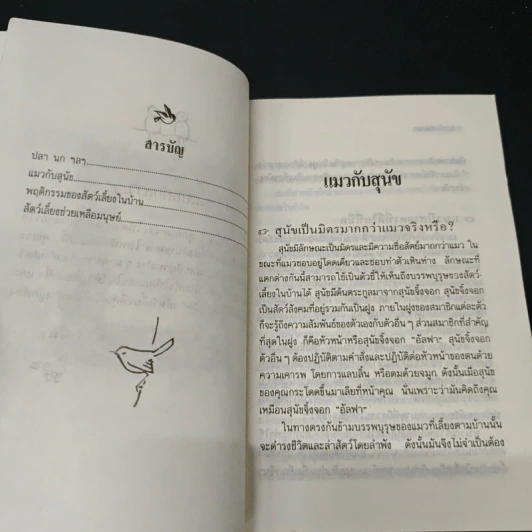 สารบัญ
ปลา นก ฯลฯ
แมวกับสุนัข
พฤติกรรมของสัตว์เลี้ยงในบ้าน
สัตว์เลี้ยงช่วยเหลือมนุษย์
แมวกับสุนัข
สุนัขเป็นมิตรมากกว่าแมวจริงหรือ?
สุนัขมีลักษณะเป็นมิตรและมีความซื่อสัตย์มากกว่าแมว ใน
ขณะที่แมวชอบอยู่โดดเดี่ยวและชอบทำตัวเหินห่าง ลักษณะที่
แตกต่างกันนี้สามารถใช้เป็นตัวชี้ให้เห็นถึงบรรพบุรุษของสัตว์-
เลี้ยงในบ้านได้ สุนัขมีต้นตระกูลมาจากสุนัขจิ้งจอก สุนัขจิ้งจอก
เป็นสัตว์สังคมที่อยู่รวมกันเป็นฝูง ภายในฝูงของสมาชิกแต่ละตัว
ก็จะรู้ถึงความสัมพันธ์ของตัวเองกับตัวอื่น ๆ ส่วนสมาชิกที่สำคัญ
ที่สุดในฝูง ก็คือหัวหน้าหรือสุนัขจิ้งจอก "อัลฟา" สุนัขจิ้งจอก
ตัวอื่น ๆ ต้องปฏิบัติตามคำสั่งและปฏิบัติต่อหัวหน้าของตนด้วย
ความเคารพ โดยการแลบลิ้น หรือดมด้วยจมูก ดังนั้นเมื่อสุนัข
ของคุณกระโดดขึ้นมาเลียที่หน้าคุณ นั่นเพราะว่ามันคิดถึงคุณ
เหมือนสุนัขจิ้งจอก "อัลฟา"
ในทางตรงกันข้ามบรรพบุรุษของแมวที่เลี้ยงตามบ้านนั้น
จะดำรงชีวิตและล่าสัตว์โดยลำพัง ดังนั้นมันจึงไม่จำเป็นต้อง